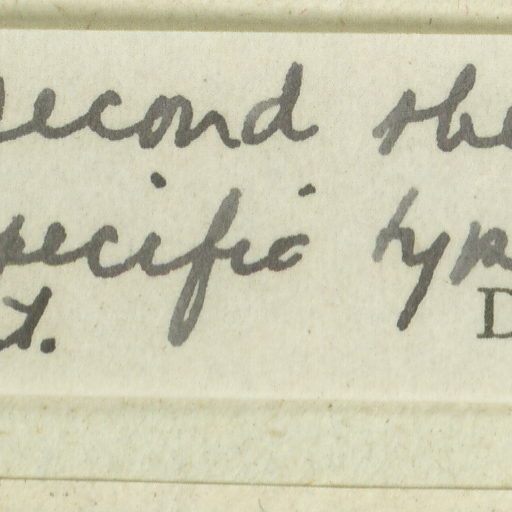 second she
specific typ
t.
D